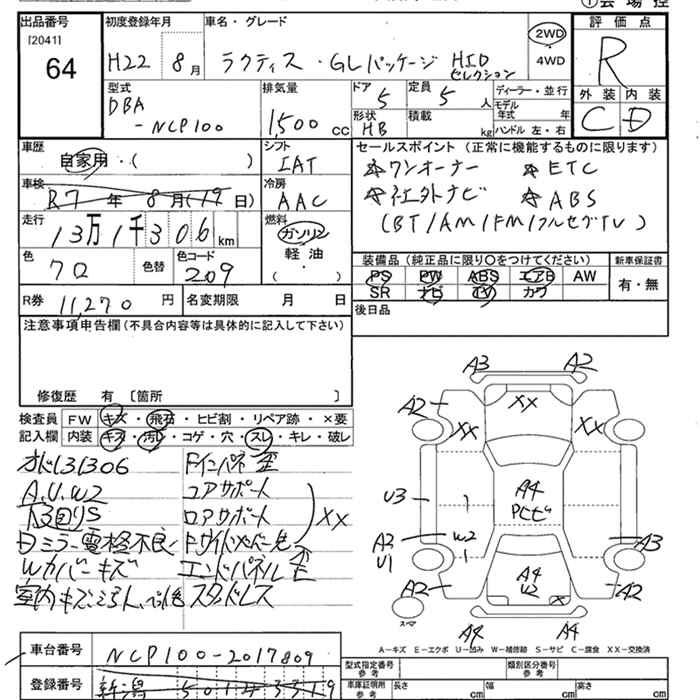 ①会場控
出品番号 初度登録年月 車名・グレード 評価点
[2041]
64 H22 8月 ラクティス・GLパッケージ HID セレクション 2WD ・ 4WD R
型式 排気量 ドア 定員 ディーラー・並行 外装 内装
DBA -NCP100 1,500 cc 5 5人 モデル年式 年 C D
形状 積載
HB kg ハンドル 左・右
車歴 シフト セールスポイント (正常に機能するものに限ります)
自家用・( ) IAT ☆ワンオーナー ☆ETC
車検 冷房 ☆社外ナビ ☆ABS
R7年 8月(19日) AAC (BT/AM/FM/フルセグTV)
走行 燃料
13万1千306km ガソリン
軽油
( )
色 色替 色コード 装備品 (純正品に限り○をつけてください) 新車保証書
7D 209 PS PW ABS エアB AW 有・無
SR ナビ TV カワ
R券 11,270円 名変期限 月 日 後日品
注意事項申告欄(不具合内容等は具体的に記入して下さい)
修復歴 有 〔箇所 〕
検査員 FW キズ・飛石・ヒビ割・リペア跡・×要
記入欄 内装 キズ・汚れ・コゲ・穴・スレ・キレ・破レ
131306 Fインパネ歪
A.U.W2 コアサポート
下回りS ロアサポート XX
ミラー電格不良
Wカバーキズ エンドパネル歪
室内キズ スタッドレス
A3 A2
A2 XX
XX XX
U3 A4
W2
A3 U1 A3
A2 A4 U2 A2
X
スペア
A4 A4
A−キズ E−エクボ U−凹み W−補修跡 S−サビ C−腐食 XX−交換済
車台番号 NCP100-2017809
型式指定番号 参考 類別区分番号 参考
登録番号 新潟 501
車庫証明用 参考 長さ cm 幅 cm 高さ cm